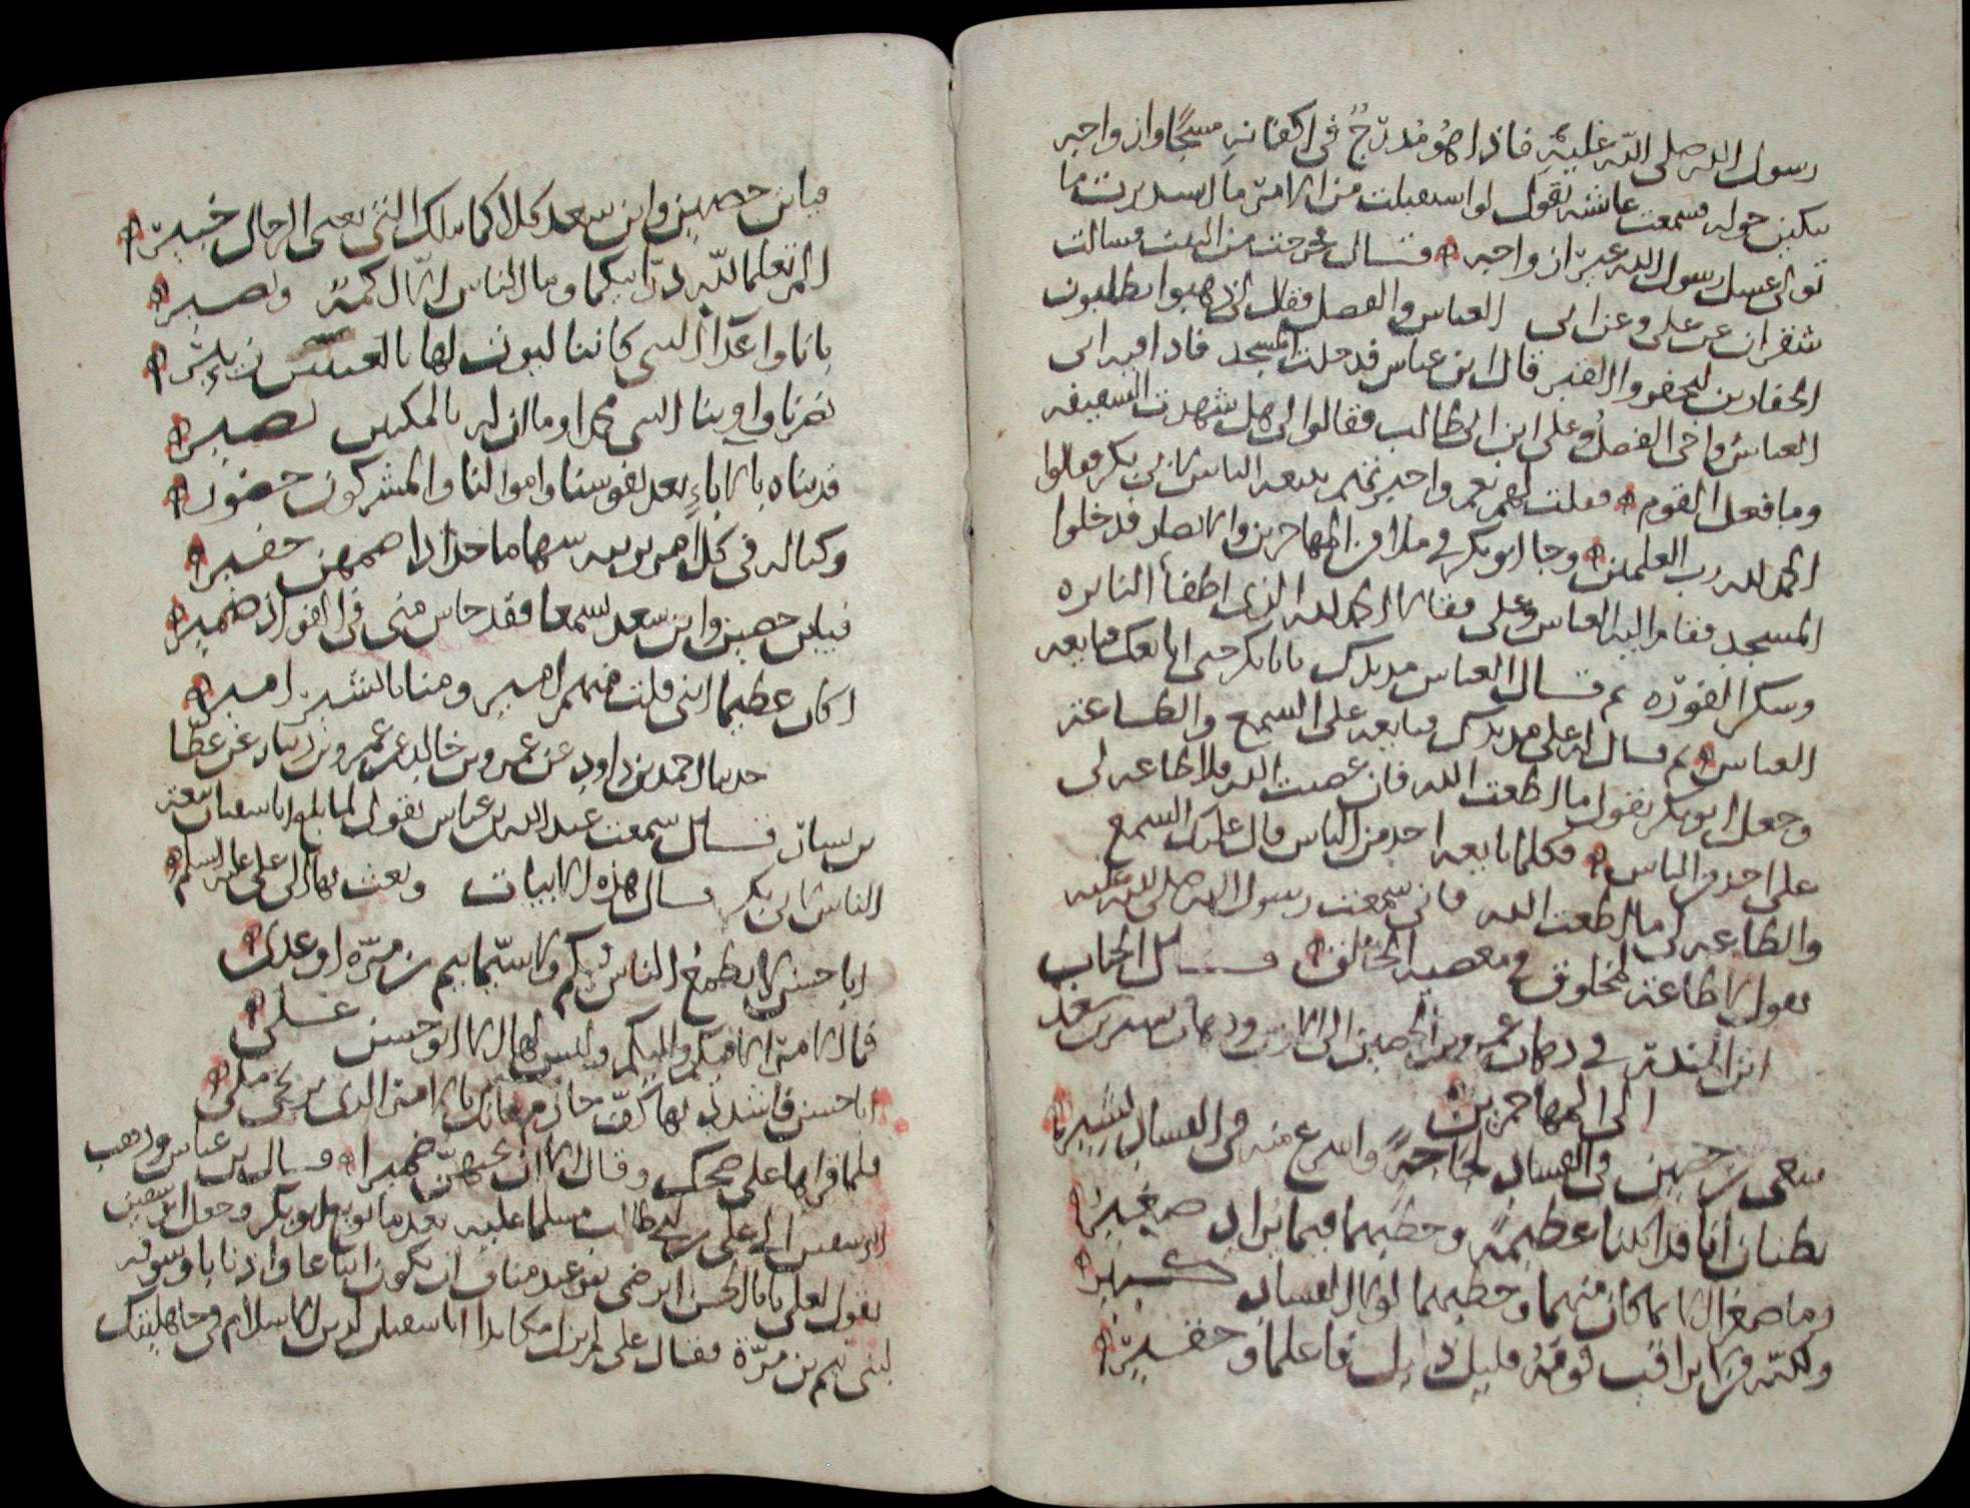 رسول الله صلى الله عليه فاذا هو مدرج في اكفانه مسجا وازواجه
يبكين حوله فسمعت عائشه تقول لو استقبلت من الامر ما استدبرت ما
تولى غسل رسول الله غير ازواجه قال خرجت من البيت فسالت
شقران عن علي وعن ابي العباس والفضل فقال لي ذهبوا يطلبون
الحفارين ليحفروا القبر قال ابن عباس فدخلت المسجد فاذا فيه ابي
العباس واخي الفضل وعلي ابن ابي طالب فقالوا لي هل شهدت السقيفه
وما فعل القوم فقلت لهم نعم واخبرتهم ببيعه الناس لابي بكر فقالوا
الحمد لله رب العلمين وجا ابو بكر في ملا من المهاجرين والانصار فدخلوا
المسجد فقام اليه العباس وعلي فقالا الحمد لله الذي اطفأ النايره
وسكن الفوره ثم قال العباس مد يدك يابا بكر حتى ابايعك فبايعه
العباس ثم قال له علي مد يدك فبايعه على السمع والطاعة
وجعل ابو بكر يقول ما اطعت الله فان عصيت الله فلا طاعه لي
على احد من الناس فكلما بايعه احد من الناس قال عليك السمع
والطاعه لي ما اطعت الله فاني سمعت رسول الله صلى الله عليه
يقول لا طاعة لمخلوق في معصيه الخالق قال الحباب
ابن المنذر في ذهاب عمرو بن الحصين الى الازد وذهاب بن سعد
الى المهاجرين
سعى بن حصين في الفساد لجاجة واسرع منه في الفساد بشير
يظنان انا قد اتينا عظيمة وخطبهما فيما يراد صغير
وما صغرا الا بما كان منهما وخطبهما لولا الفساد كبير
ولكنه من لا يراقب قومه قليل ذليل فاعلما وحقير
فيابن حصين وابن سعد كلاكما بتلك التي تعيى الرجال خبير
الم تعلما لله در ابيكما وما الناس الا اكمه وبصير
بانا واعدا النبي كاننا ليوث لها بالعيس زئير
نصرنا واوينا النبي محمدا وما ان له بالمكتين نصير
فديناه بالاباء بعد نفوسنا واموالنا والمشركون حضور
وكنا له في كل امر يريبه سهاما حدادا ضمهن حفير
فيابن حصين وابن سعد لتسمعا فقد جاش مني في الفؤاد ضمير
اكان عظيما انني قلت منهم امير ومنا بالبشير امير
حدثنا احمد بن داود عن عمرو بن خالد عن عمرو بن دينار عن عطا
بن يسار قال سمعت عبد الله بن عباس يقول لما بلغ ابا سفيان بيعة
الناس لابي بكر قال هذه الابيات وبعث بها الى علي عليه السلم
ابا حسن لا يطمع الناس فيكم ولا سيما تيم بن مره او عدي
فما الامر الا فيكم واليكم وليس لها الا ابو حسن علي
ابا حسن فاشدد بها كف حازم فانك بالامر الذي يرتجى ملي
فلما قراها علي ضحك وقال قال بن عباس وذهب
ابو سفين الى علي بن ابي طالب مسلما عليه بعد ما بويع ابو بكر وجعل ابو سفين
يقول لعلي يابا الحسن ارضى بنو عبد مناف ان يكونوا اتباعا واذنابا وسوقه
لبني تيم بن مرة فقال علي لم يزل مكايدا ابا سفيان لدين الاسلام في جاهليتك